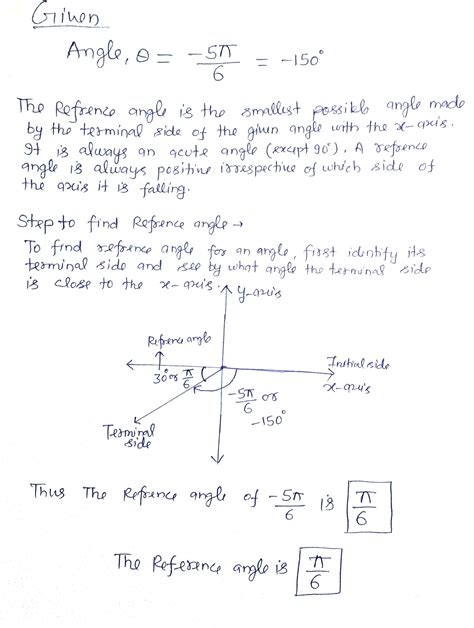 Given
Angle, θ = -5π/6 = -150°
The Refrence angle is the smallest possible angle made
by the terminal side of the given angle with the x-axis.
It is always an acute angle (except 90°). A refrence
angle is always positive irrespective of which side of
the axis it is falling.
Step to find Refrence angle →
To find refrence angle for an angle, first identify its
terminal side and see by what angle the terminal side
is close to the x-axis.
y-axis
Refrence angle
Initial side
30° or π/6
x-axis
-5π/6 or
-150°
Terminal
side
Thus The Refrence angle of -5π/6 is π/6
The Reference angle is π/6